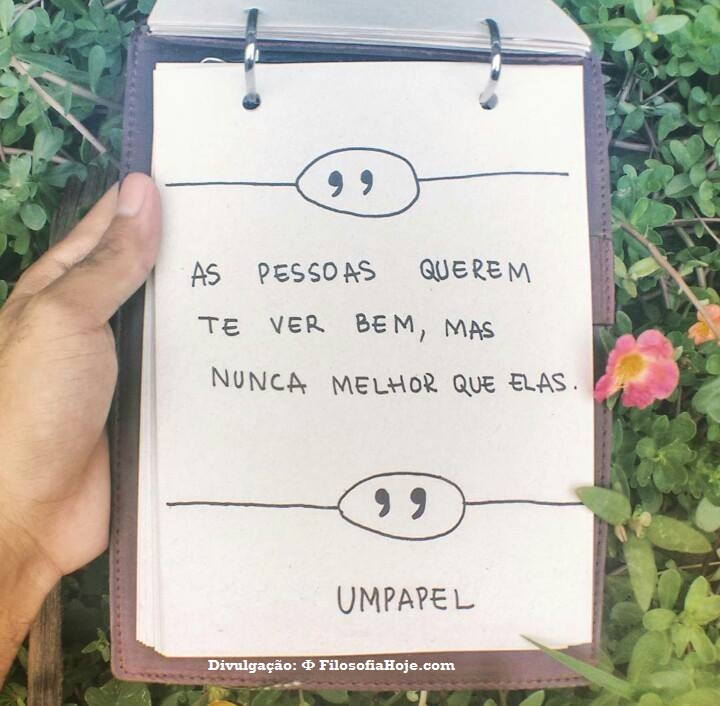 ,,
AS PESSOAS QUEREM
TE VER BEM, MAS
NUNCA MELHOR QUE ELAS.
,,
UMPAPEL
Divulgação: Φ FilosofiaHoje.com